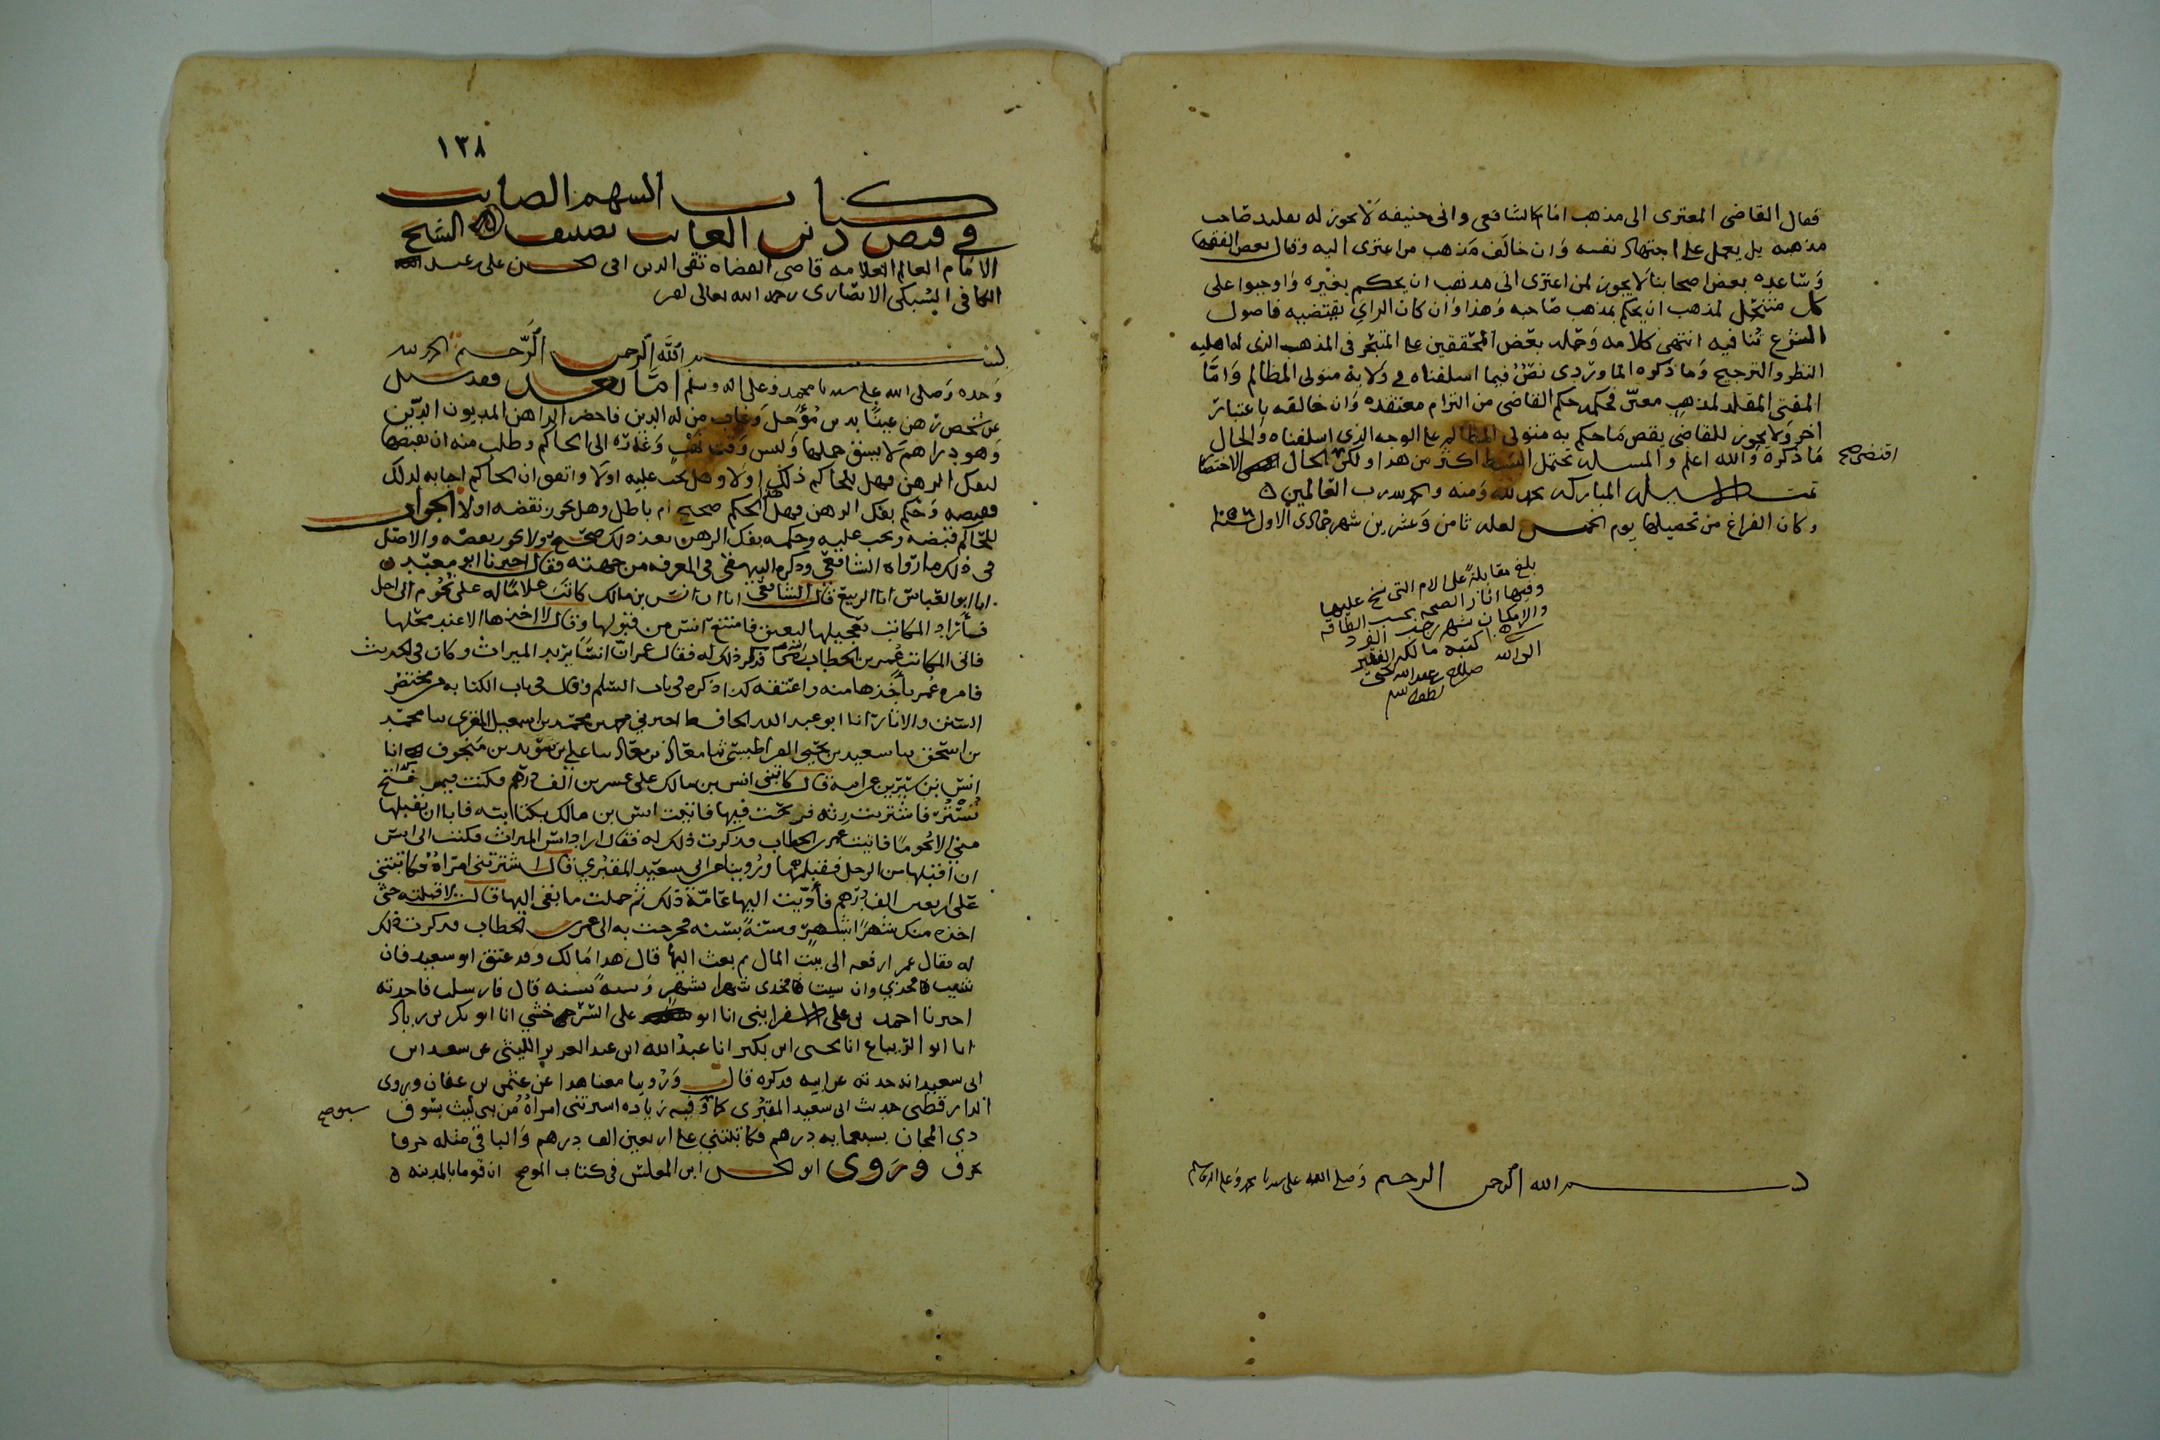 فقال القاضي المعتزى الى مذهب امام كالشافعي وابي حنيفه لا يجوز له تقليد صاحب
مذهبه بل يعمل على اجتهاد نفسه وان خالف مذهب من اعتزى اليه وقال بعض الفقها
وساعده بعض اصحابنا لا يجوز لمن اعتزى الى مذهب ان يحكم بغيره واوجبوا على
كل منتحل لمذهب ان يحكم بمذهب صاحبه وهذا وان كان الراي يقتضيه فاصول
الشرع تنافيه انتهى كلامه وحمله بعض المحققين على المتبحر في المذهب الذي له اهليه
النظر والترجيح وما ذكره الماوردي نص فيما اسلفناه في ولاية متولي المظالم واما
المفتي المقلد لمذهب معين فحكمه حكم القاضي من التزام معتقده وان خالفه باعتبار
اخر ولا يجوز للقاضي نقض ما حكم به متولي المظالم على الوجه الذي اسلفناه والحال
ما ذكره والله اعلم والمسله تحتمل البسط اكثر من هذا ولكن الحال الاختصا
اقتضى صح
تمت المباركه بحمد الله ومنه والحمد لله رب العالمين
وكان الفراغ من تحصيلها يوم الخميس لعله ثامن وعشرين شهر جمادى الاول
بلغ مقابلة على الام التي نسخ عليها
وفيها اثار الصحه بحسب الطاقه
والامكان شهر رجب الفرد
كتبه مالكه الفقير
الى الله صلاح عبد الله
لطف الله
بسم الله الرحمن الرحيم وصلى الله على سيدنا محمد وعلى اله وسلم
١٣٨
كتاب السهم الصايب
في قبض دين الغايب تصنيف الشيخ
الامام العالم العلامه قاضي القضاه تقي الدين ابي الحسن علي بن عبد
الكافي السبكي الانصاري رحمه الله تعالى
بسم الله الرحمن الرحيم الحمد لله
وحده وصلى الله على سيدنا محمد وعلى اله وسلم اما بعد فقد سيل
عن شخص رهن عينا بدين مؤجل وغاب من له الدين فاحضر الراهن المديون الدين
وهو دراهم لا يشق حملها وليس وقت نهب وغاره الى الحاكم وطلب منه ان يقبضها
ليفك الرهن فهل للحاكم ذلك اولا وهل يجب عليه اولا واتفق ان الحاكم اجابه لذلك
فقبضه وحكم بفك الرهن فهل هذا الحكم صحيح ام باطل وهل يجوز نقضه اولا الجواب
للحاكم قبضه ويجب عليه وحكمه بفك الرهن بعد ذلك صحيح ولا يجوز نقضه والاصل
في ذلك ما رواه الشافعي وذكره البيهقي في المعرفه من جهته فقال اخبرنا ابو سعيد
انا ابو العباس انا الربيع قال الشافعي انا ان انس بن مالك كاتب غلاما له على نجوم الى اجل
فاراد المكاتب تعجيلها ليعتق فامتنع انس من قبولها وقال لا اخذها الا عند محلها
فاتى المكاتب عمر بن الخطاب فذكر ذلك له فقال عمر ان انسا يريد الميراث وكان في الحديث
فامره عمر باخذها منه واعتقه كذا ذكره في باب السلم وقال في باب الكتابه من مختصر
السنن والاثار انا ابو عبد الله الحافظ اخبرني محمد بن محمد بن اسمعيل المقري ثنا محمد
بن اسحق ثنا سعيد بن يحيى ثنا معاذ بن معاذ ثنا علي بن سويد بن منجوف انا
انس بن سيرين عن ابيه قال كاتبني انس بن مالك على عشرين الف درهم فكنت فيمن فتح
تستر فاشتريت رثه فربحت فيها فاتيت انس بن مالك بكتابته فابى ان يقبلها
مني الا نجوما فاتيت عمر بن الخطاب فذكرت ذلك له فقال اراد انس الميراث فكتب الى انس
ان اقبلها من الرجل فقبلها وروينا عن ابي سعيد المقبري قال اشترتني امراة فكاتبتني
على اربعين الف درهم فأديت اليها عامة ذلك ثم حملت ما بقي اليها قالت لا حتى
اخذه منك شهرا بشهر وسنة بسنه فخرجت به الى عمر بن الخطاب فذكرت ذلك
له فقال عمر ارفعه الى بيت المال ثم بعث اليها قال هذا مالك وقد عتق ابو سعيد فان
شيت فخذي وان شيت فخذي شهرا بشهر وسنة بسنه قال فارسلت فاخذته
اخبرنا احمد بن علي الاسفرايني انا ابو علي السرخسي انا ابو بكر بن زياد
انا ابو الزنباع انا يحيى ابن بكير انا عبد الله ابن عبد العزيز الليثي عن سعيد ابن
ابي سعيد انه حدثه عن ابيه فذكره قال وروينا معنا هذا عن عثمن بن عفان وروى
الدارقطني حديث ابي سعيد المقبري كما وفيه زياده اشترتني امراة من بني ليث بسوق
بسوق صح
ذي المجاز بسبعمايه درهم فكاتبتني على اربعين الف درهم والباقي مثله حرفا
بحرف وروى ابو الحسن ابن المغلس في كتاب الموضح ان قوما بالمدينه